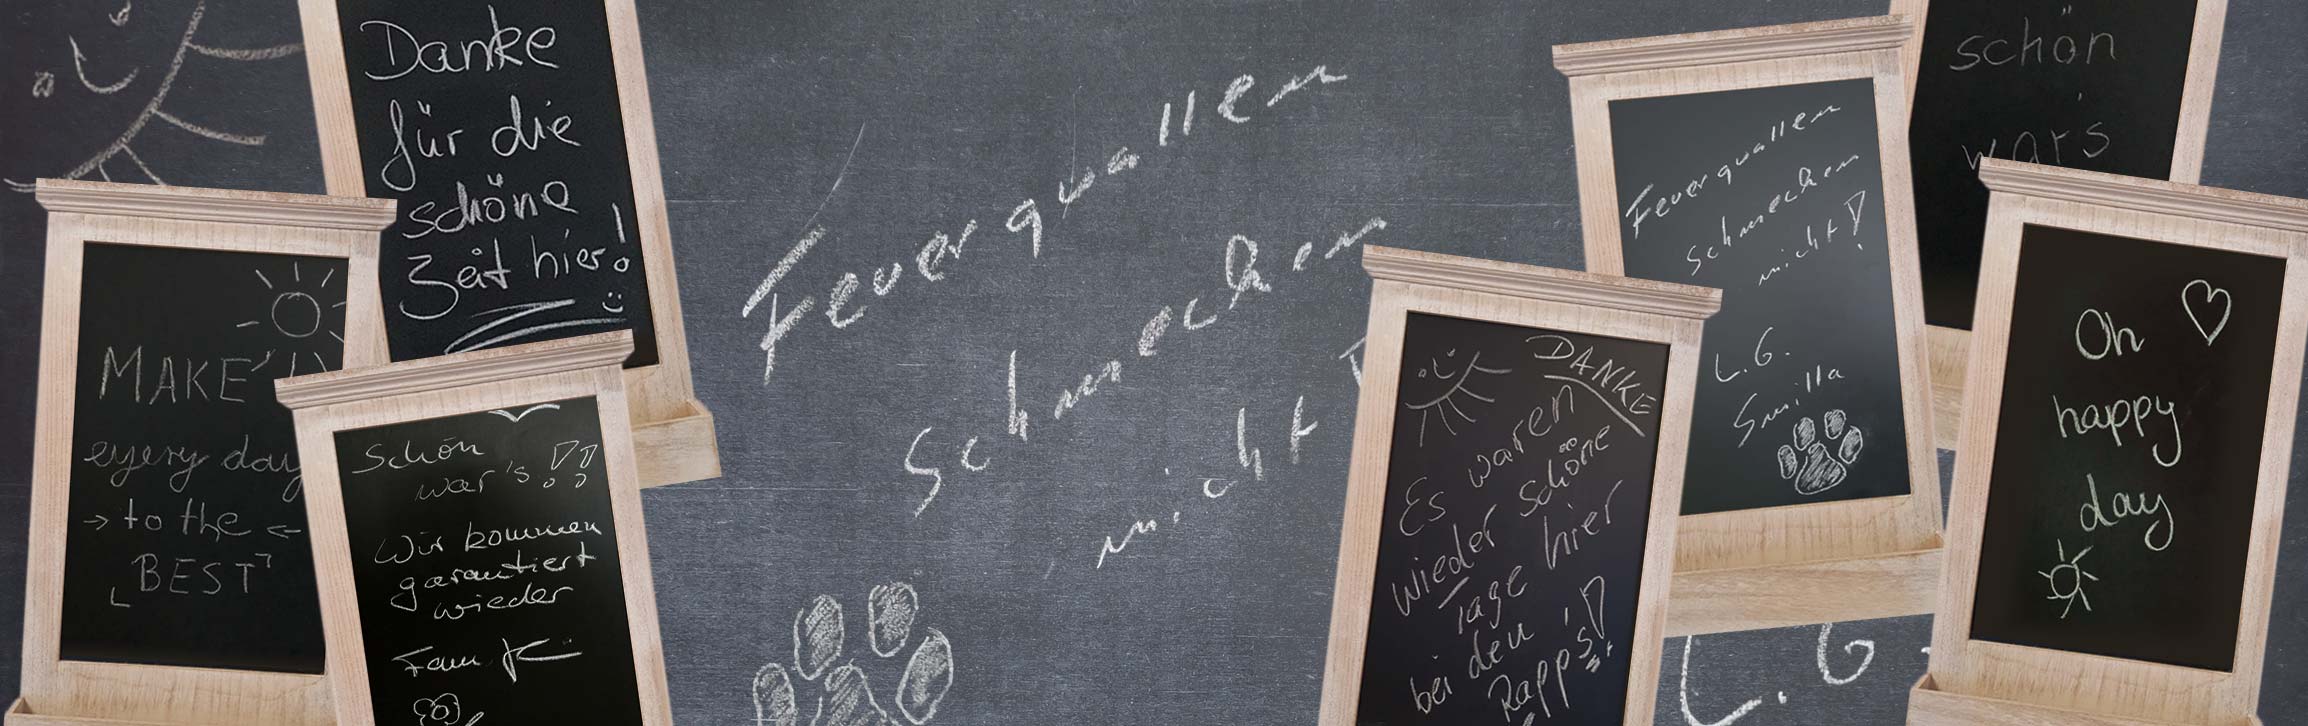 Danke
für die
schöne
Zeit hier!
MAKE
every day
→ to the ←
BEST
Schön
war's!!
Wir kommen
garantiert
wieder
Fam.
Feuerquallen
schmecken
nicht
DANKE
Es waren
wieder schöne
Tage hier
bei den
Rapp's!
Feuerquallen
schmecken
nicht!
L.G.
Smilla
L. G.
schön
war's
Oh
happy
day